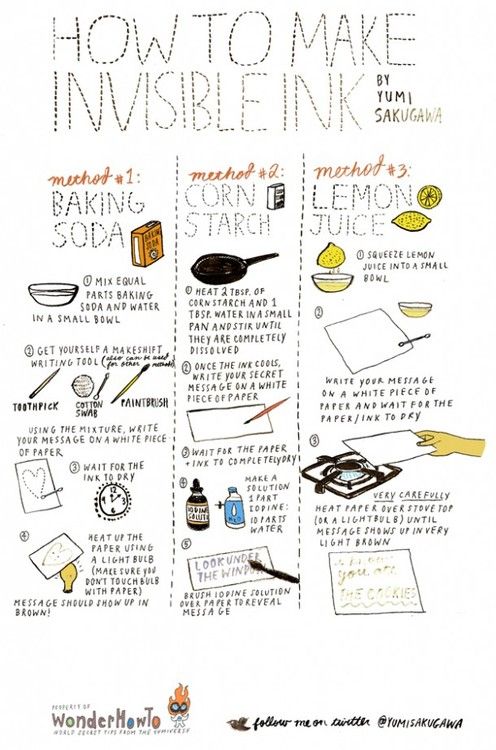 HOW TO MAKE
INVISIBLE INK
BY
YUMI
SAKUGAWA
method #1:
BAKING
SODA
BAKING
SODA
① MIX EQUAL
PARTS BAKING
SODA AND WATER
IN A SMALL BOWL
② GET YOURSELF A MAKESHIFT
WRITING TOOL (also can be used
for other methods)
TOOTHPICK
COTTON
SWAB
PAINTBRUSH
USING THE MIXTURE, WRITE
YOUR MESSAGE ON A WHITE PIECE
OF PAPER
③ WAIT FOR THE
INK TO DRY
④ HEAT UP THE
PAPER USING
A LIGHT BULB
(MAKE SURE YOU
DON'T TOUCH BULB
WITH PAPER)
MESSAGE SHOULD SHOW UP IN
BROWN!
method #2:
CORN
STARCH
① HEAT 2 TBSP. OF
CORNSTARCH AND 1
TBSP. WATER IN A SMALL
PAN AND STIR UNTIL
THEY ARE COMPLETELY
DISSOLVED
② ONCE THE INK COOLS,
WRITE YOUR SECRET
MESSAGE ON A WHITE
PIECE OF PAPER
③ WAIT FOR THE PAPER
+ INK TO COMPLETELY DRY
④ MAKE A
SOLUTION
1 PART
IODINE:
10 PARTS
WATER
IODINE
⑤
LOOK UNDER
THE WINDOW
BRUSH IODINE SOLUTION
OVER PAPER TO REVEAL
MESSAGE
method #3:
LEMON
JUICE
① SQUEEZE LEMON
JUICE INTO A SMALL
BOWL
②
WRITE YOUR MESSAGE
ON A WHITE PIECE OF
PAPER AND WAIT FOR THE
PAPER/INK TO DRY
③
VERY CAREFULLY
HEAT PAPER OVER STOVE TOP
(OR A LIGHTBULB) UNTIL
MESSAGE SHOWS UP IN VERY
LIGHT BROWN
you ate
THE COOKIES
PROPERTY OF
WonderHowTo
WORLD SECRET TIPS FROM THE YUMIVERSE
follow me on twitter @YUMISAKUGAWA